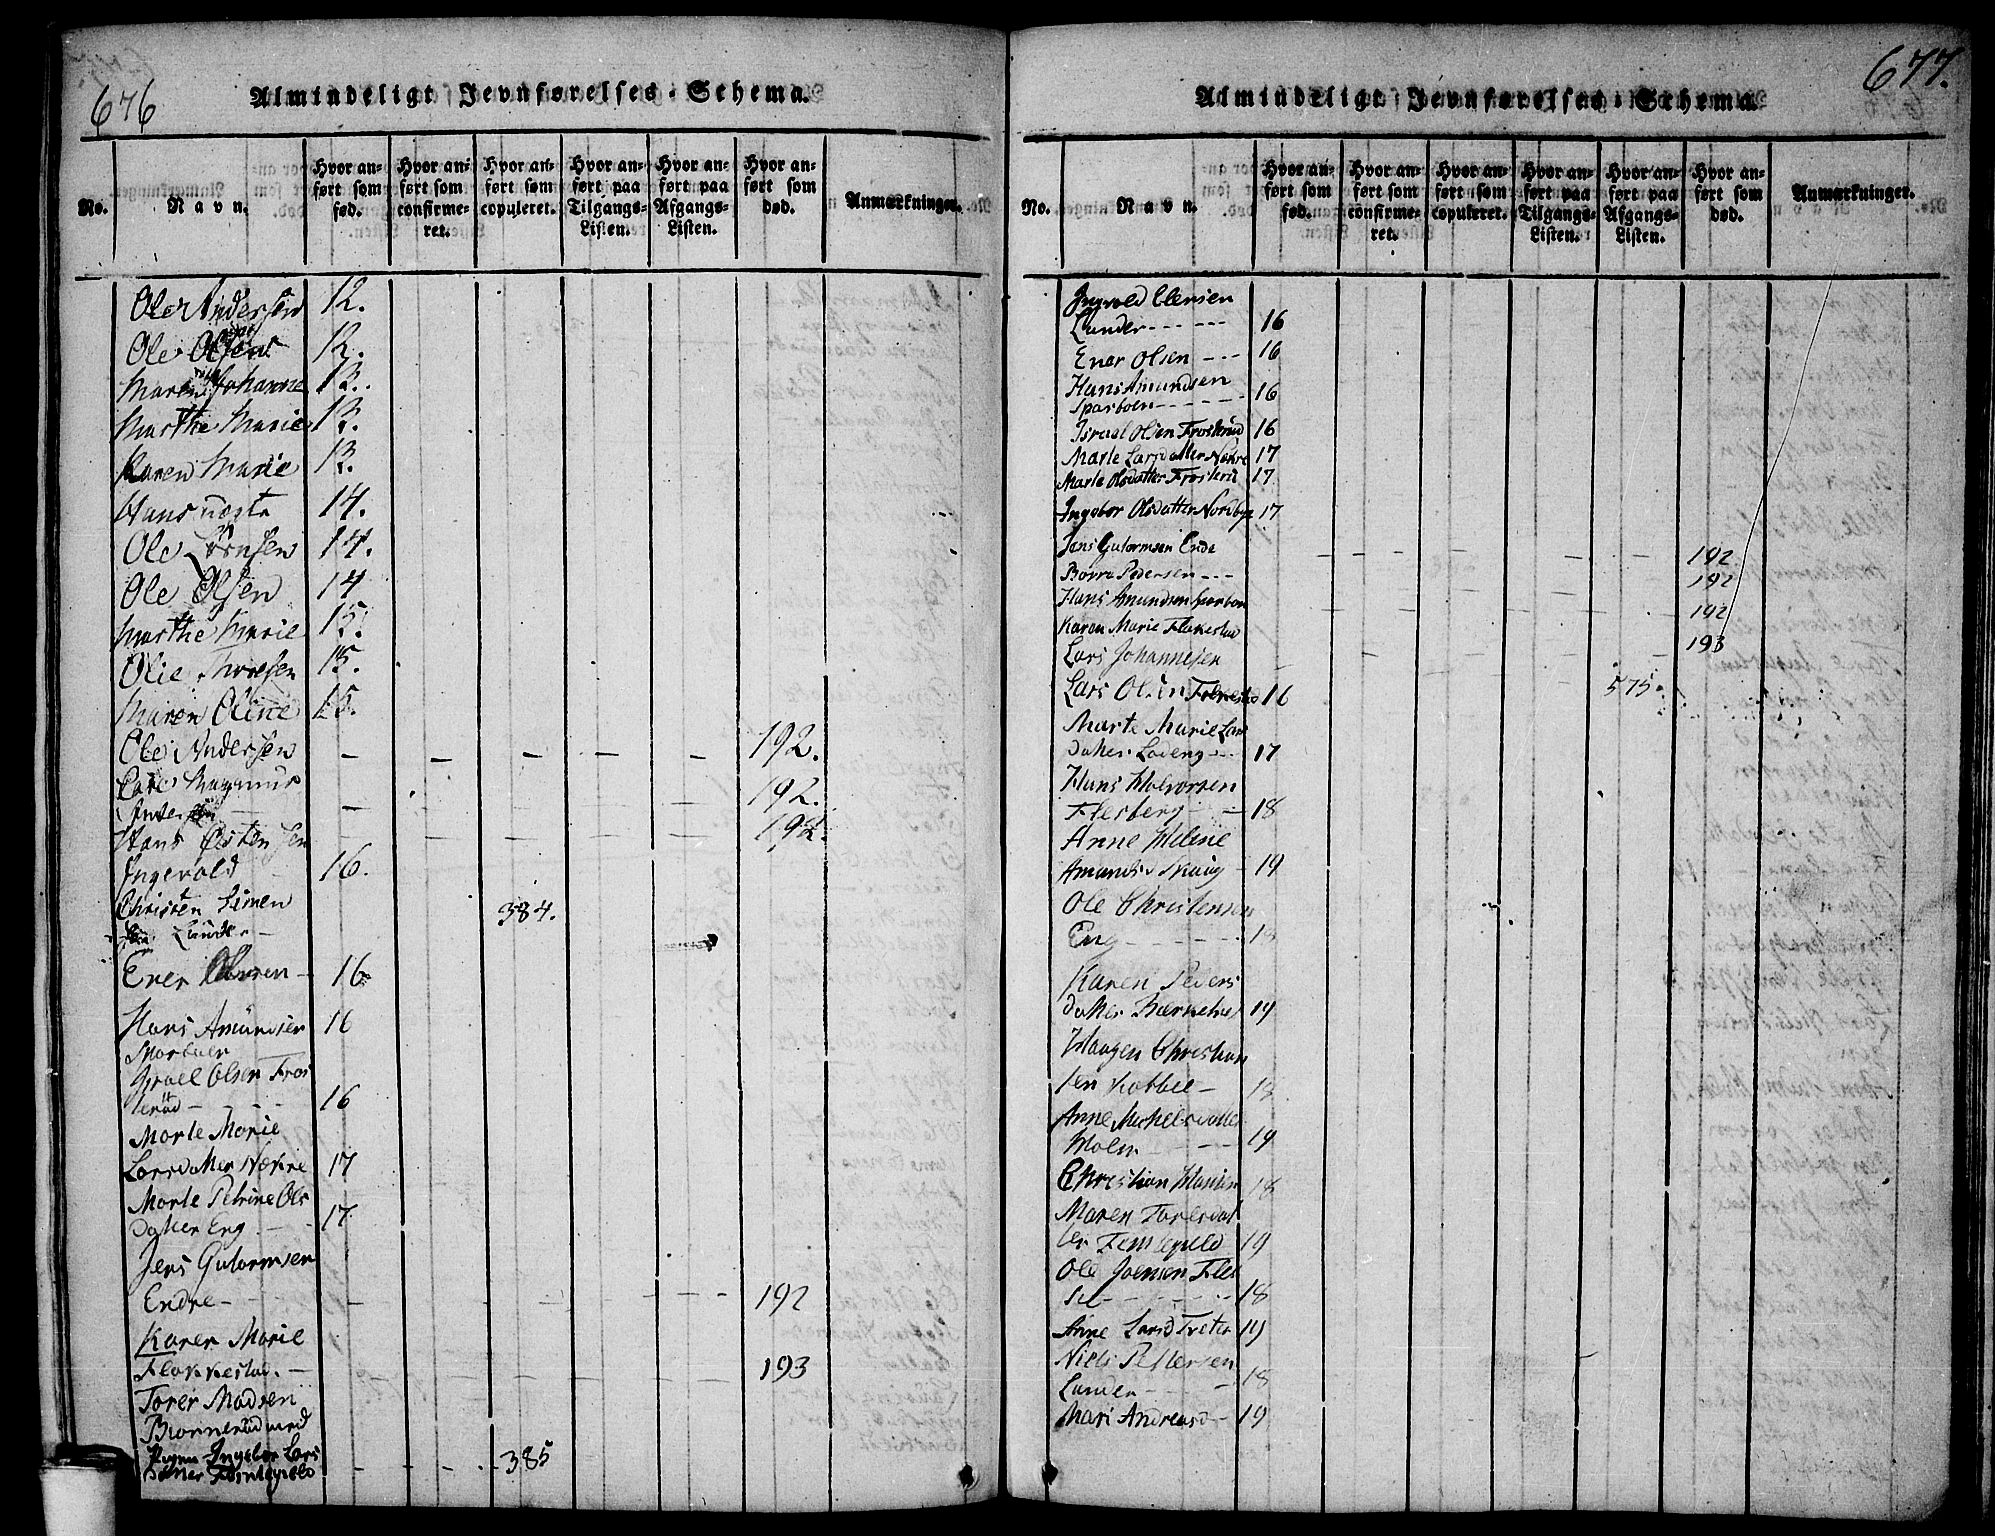 676
Almindeligt Jevnførelses-Schema.
No.
Navn.
Hvor anført som fød.
Hvor anført som confirmeret.
Hvor anført som copuleret.
Hvor anført paa Tilgangs-Listen.
Hvor anført paa Afgangs-Listen.
Hvor anført som død.
Anmærkninger.
Ole Andersen 12.
Ole Olsen 12.
Maren Johanne 13.
Marthe Marie 13.
Karen Marie 13.
Hans 14.
Ole 14.
Ole Olsen 14
Marthe Marie 15.
Olie 15.
Maren Oline 15.
Ole Andersen - - - - - 192.
Magnus
Andersen - - - 192.
Hans Østensen - - - 192.
Ingevold 16.
Christen Simen
Lunde - 384.
Ener 16
Hans Amundsen 16
Israel Olsen Fros
terød - - - - 16
Marte Marie
Larsdatter Nækre 17
Marte Petrine Ols
datter Eng - - 17
Jens Gutormsen
Endre - - - - - 192
Karen Marie
Flakkestad. - - - - 193
Torer Madsen
Biørnerød med
Ingebor Lars
datter Femtegeld - - - 385
677.
Almindeligt Jevnførelses-Schema.
No.
Navn.
Hvor anført som fød.
Hvor anført som confirmeret.
Hvor anført som copuleret.
Hvor anført paa Tilgangs-Listen.
Hvor anført paa Afgangs-Listen.
Hvor anført som død.
Anmærkninger.
Ingvold
Lunder - - - - - 16
Ener Olsen - - - 16
Hans Amundsen
Sparboen - - - - - 16
Israel Olsen Frosterud 16
Marte Larsdatter Nøkre 17
Marte Olsdatter Frosterud 17
Ingebor Olsdatter Nordbye 17
Jens Gutormsen Ende - - - - - 192
Børre Pedersen - - - 192
Hans Amundsen Sparboen - - - - 192
Karen Marie Flakestad 193
Lars Johannesen - - - - 575.
Lars Olsen 16
Marte Marie Lars
datter Løkeng - - 17
Hans Halvorsen
Flesberg - - 18
Anne Helene
Amundsd. Skaug - 19
Ole Christensen
Eng - - - - - 18
Karen Peders
datter 19
Haagen Christian
sen - 18
Anne Michelsdatter
Holm - - - 19
Christian Hansen 18
Maren Toresdat
ter Femtegeld 19
Ole Joensen Fles
- - - - - 18
Anne Larsd Treter 19
Niels Pettersen
Lunder - - - - 18
Mari Andreasd - 19